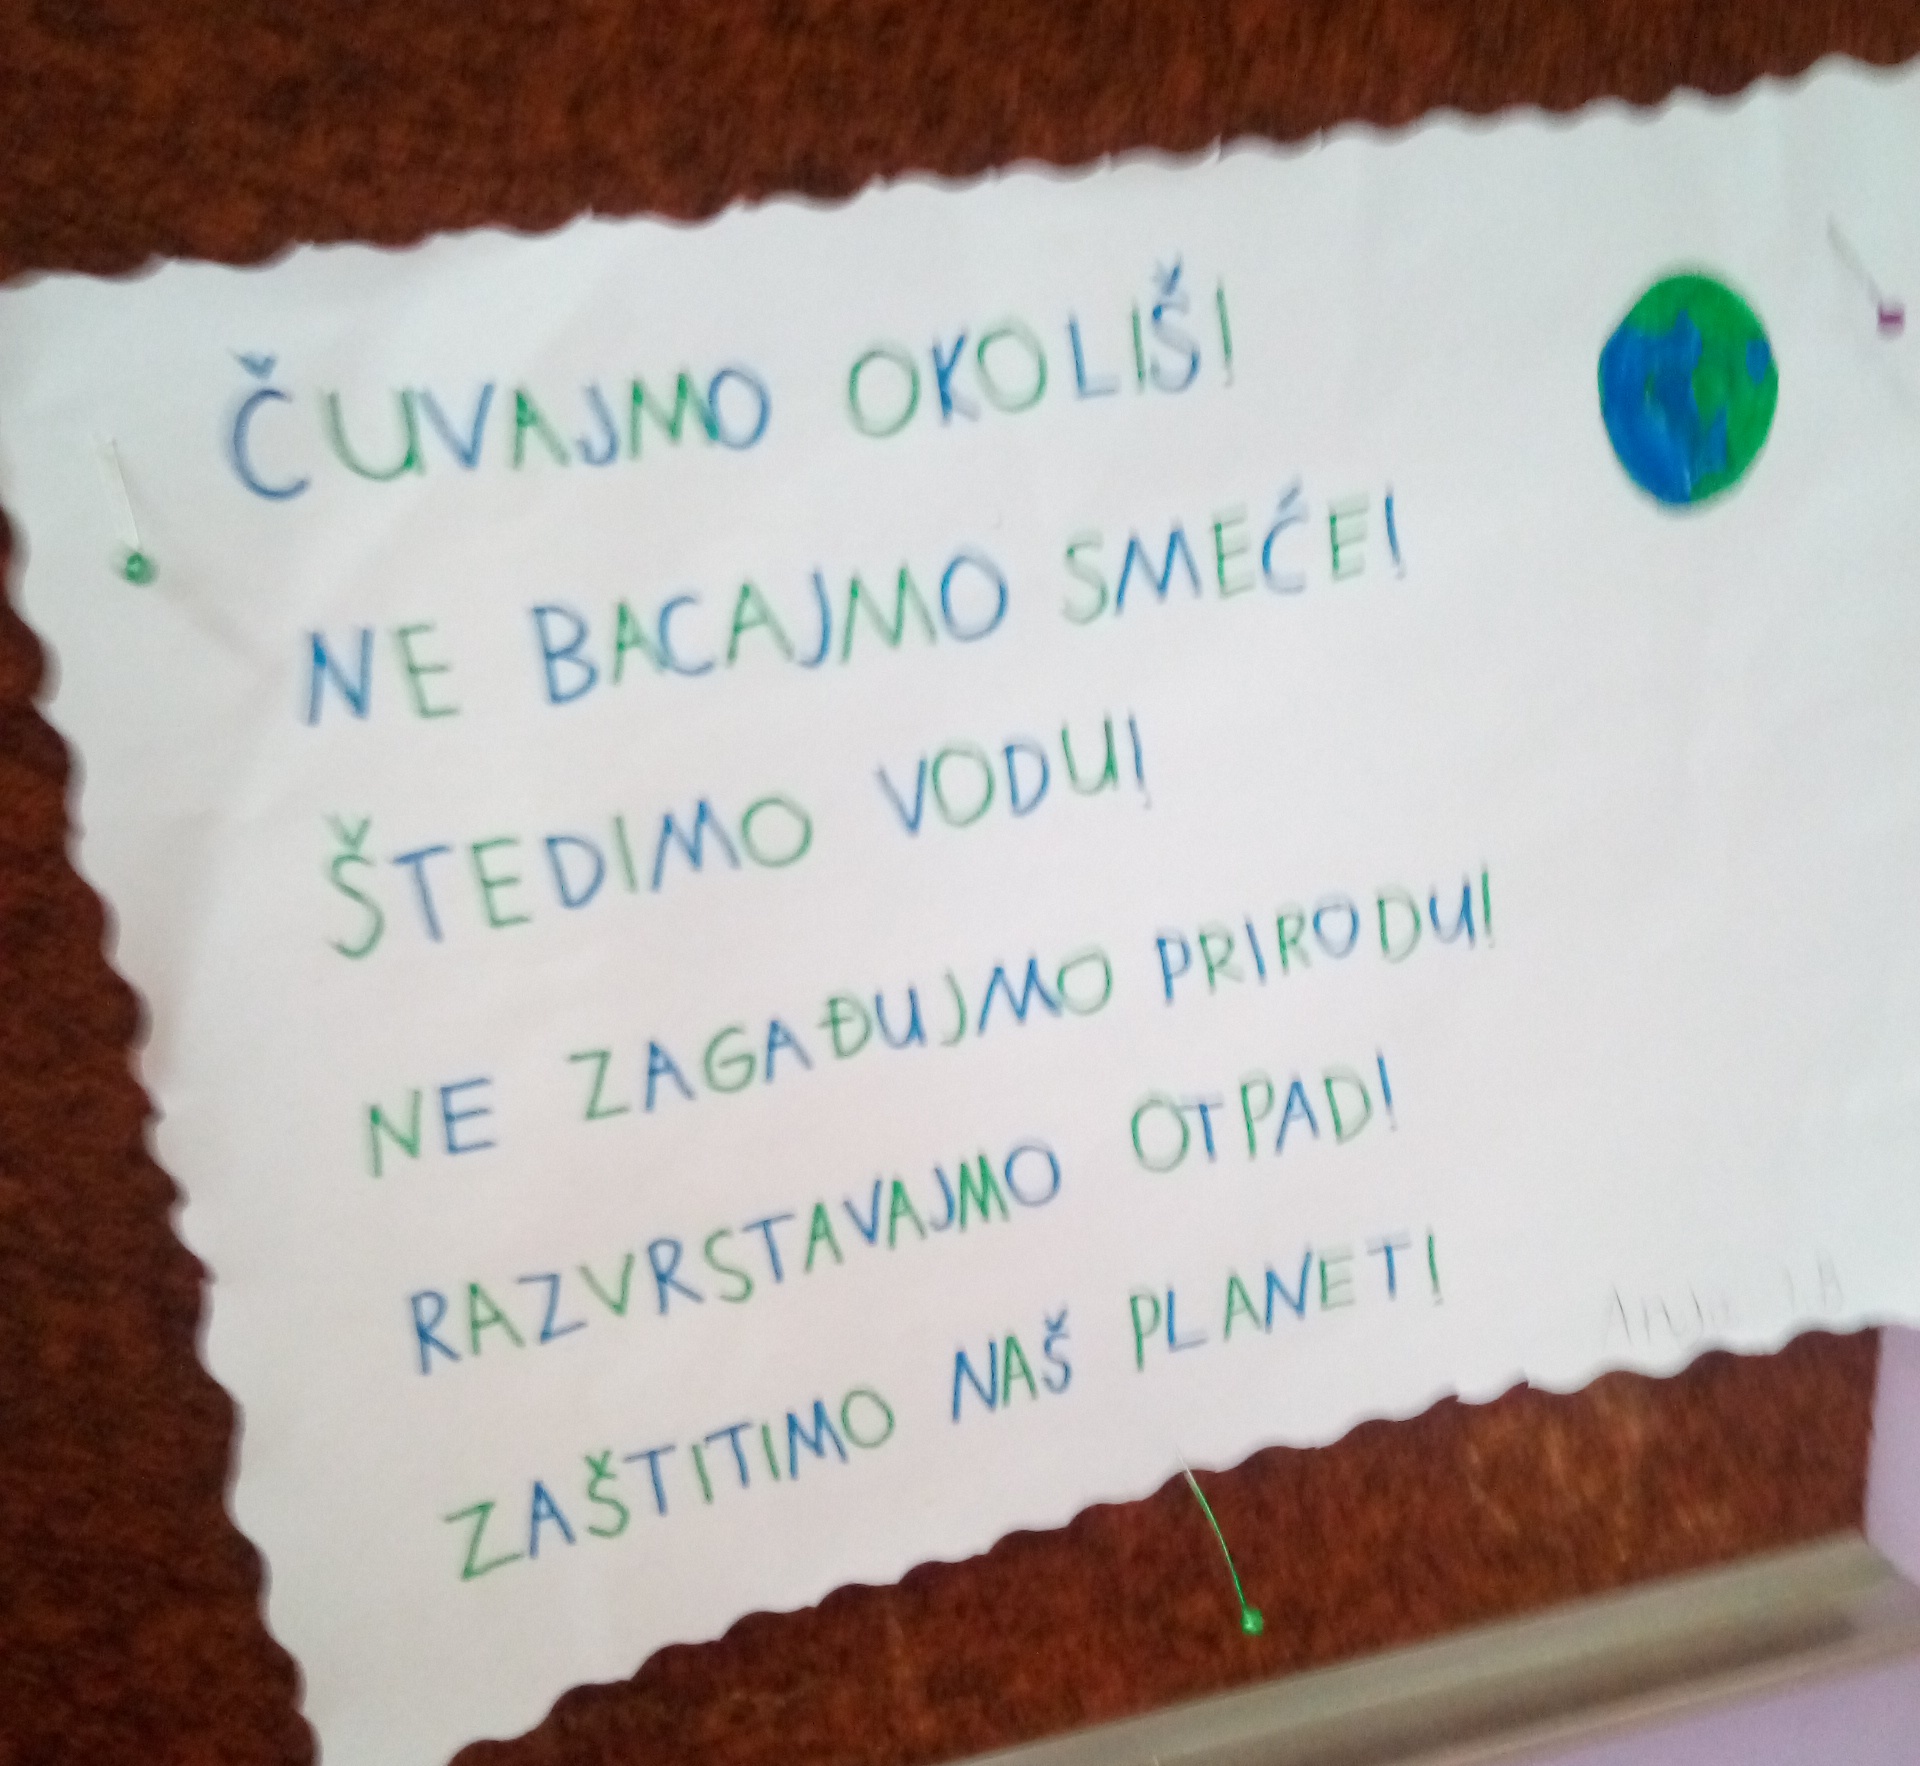 ČUVAJMO OKOLIŠ!
NE BACAJMO SMEĆE!
ŠTEDIMO VODU!
NE ZAGAĐUJMO PRIRODU!
RAZVRSTAVAJMO OTPAD!
ZAŠTITIMO NAŠ PLANET!